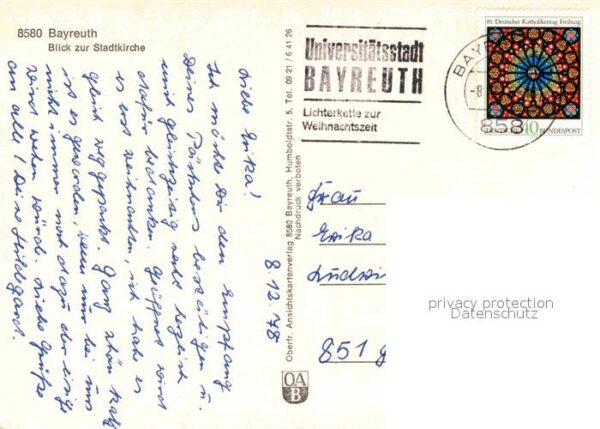 8580 Bayreuth
Blick zur Stadtkirche
Liebe Erika!
Ich möchte Dir den Empfang
Deines Päckchens bestätigen u.
und gleichzeitig recht herzlich
dafür bedanken. Geöffnet wird
es erst Weihnachten, ich habe es
gleich weggepackt. Ganz schön kalt
ist es geworden, wenn nur bei uns
nicht immer noch dazu der eisige
Wind wehen würde. Liebe Grüße
an alle! Deine Hildegard.
8.12.78
Oberfr. Ansichtskartenverlag 8580 Bayreuth, Humboldtstr. 5, Tel. 09 21 / 6 41 26
Nachdruck verboten
OA
B
Universitätsstadt
BAYREUTH
Lichterkette zur
Weihnachtszeit
85. Deutscher Katholikentag Freiburg
40 BUNDESPOST
BAY
-8
858
Frau
Erika
Ludwi
851
privacy protection
Datenschutz